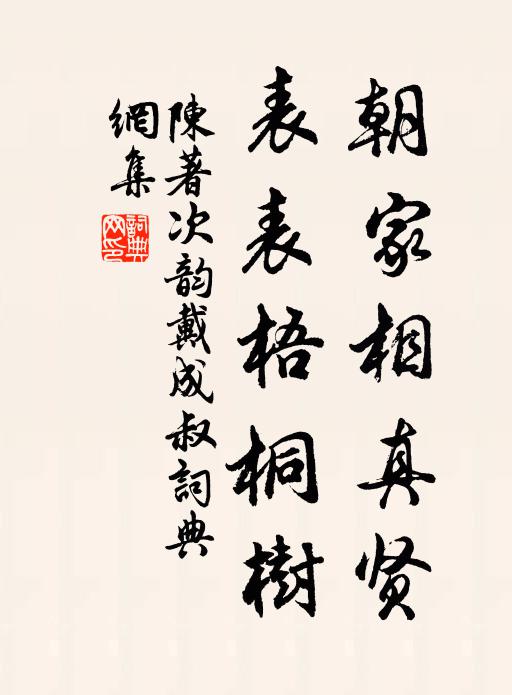 朝家相真贤
表表梧桐樹
陳著次韵戴成叔詞典
網集
詞典
网印